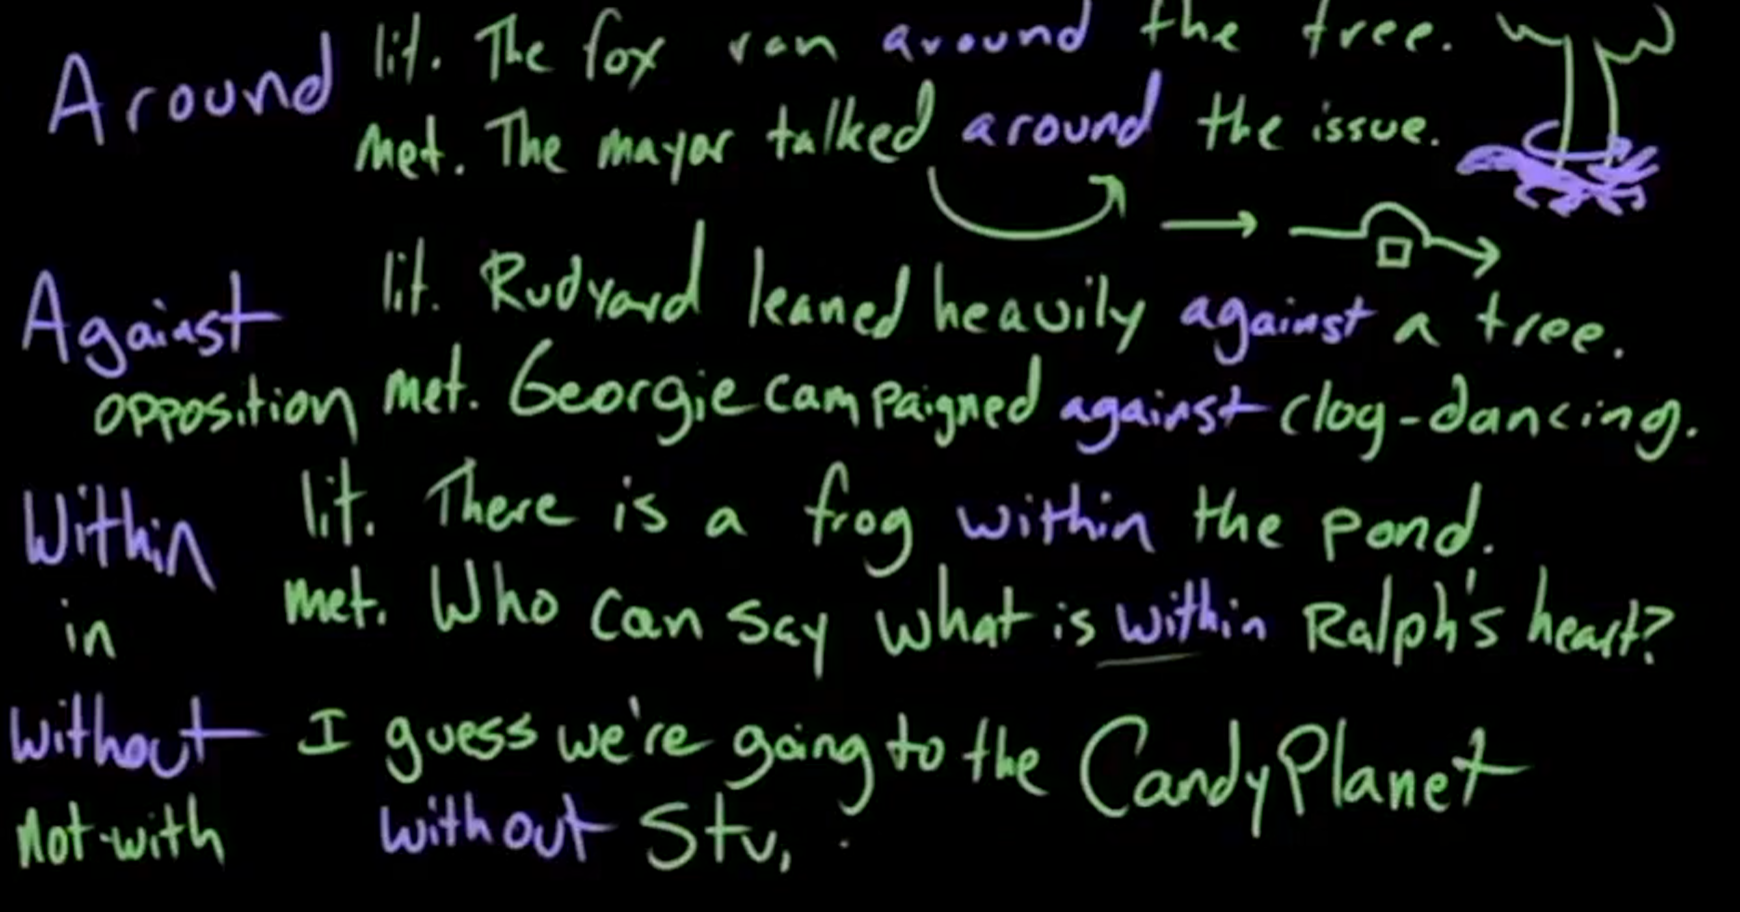 Around lit. The fox ran around the tree.
met. The mayor talked around the issue.
Against lit. Rudyard leaned heavily against a tree.
opposition met. Georgie campaigned against clog-dancing.
Within lit. There is a frog within the pond.
in met. Who can say what is within Ralph's heart?
Without I guess we're going to the Candy Planet
Not-with without Stu,